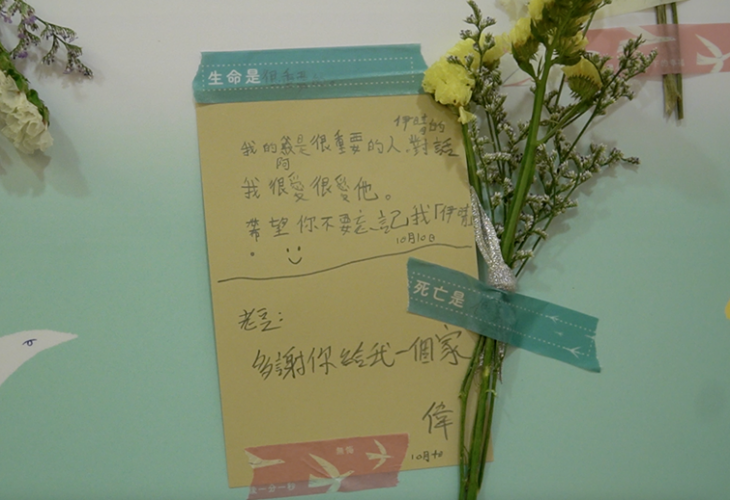 生命是 很重要
伊晴的
我的爺是很重要的人.對話
我很愛很愛他。
希望你不要忘記我「伊晴
10月10日
老豆：
多謝你給我一個家
偉
10月10
死亡是